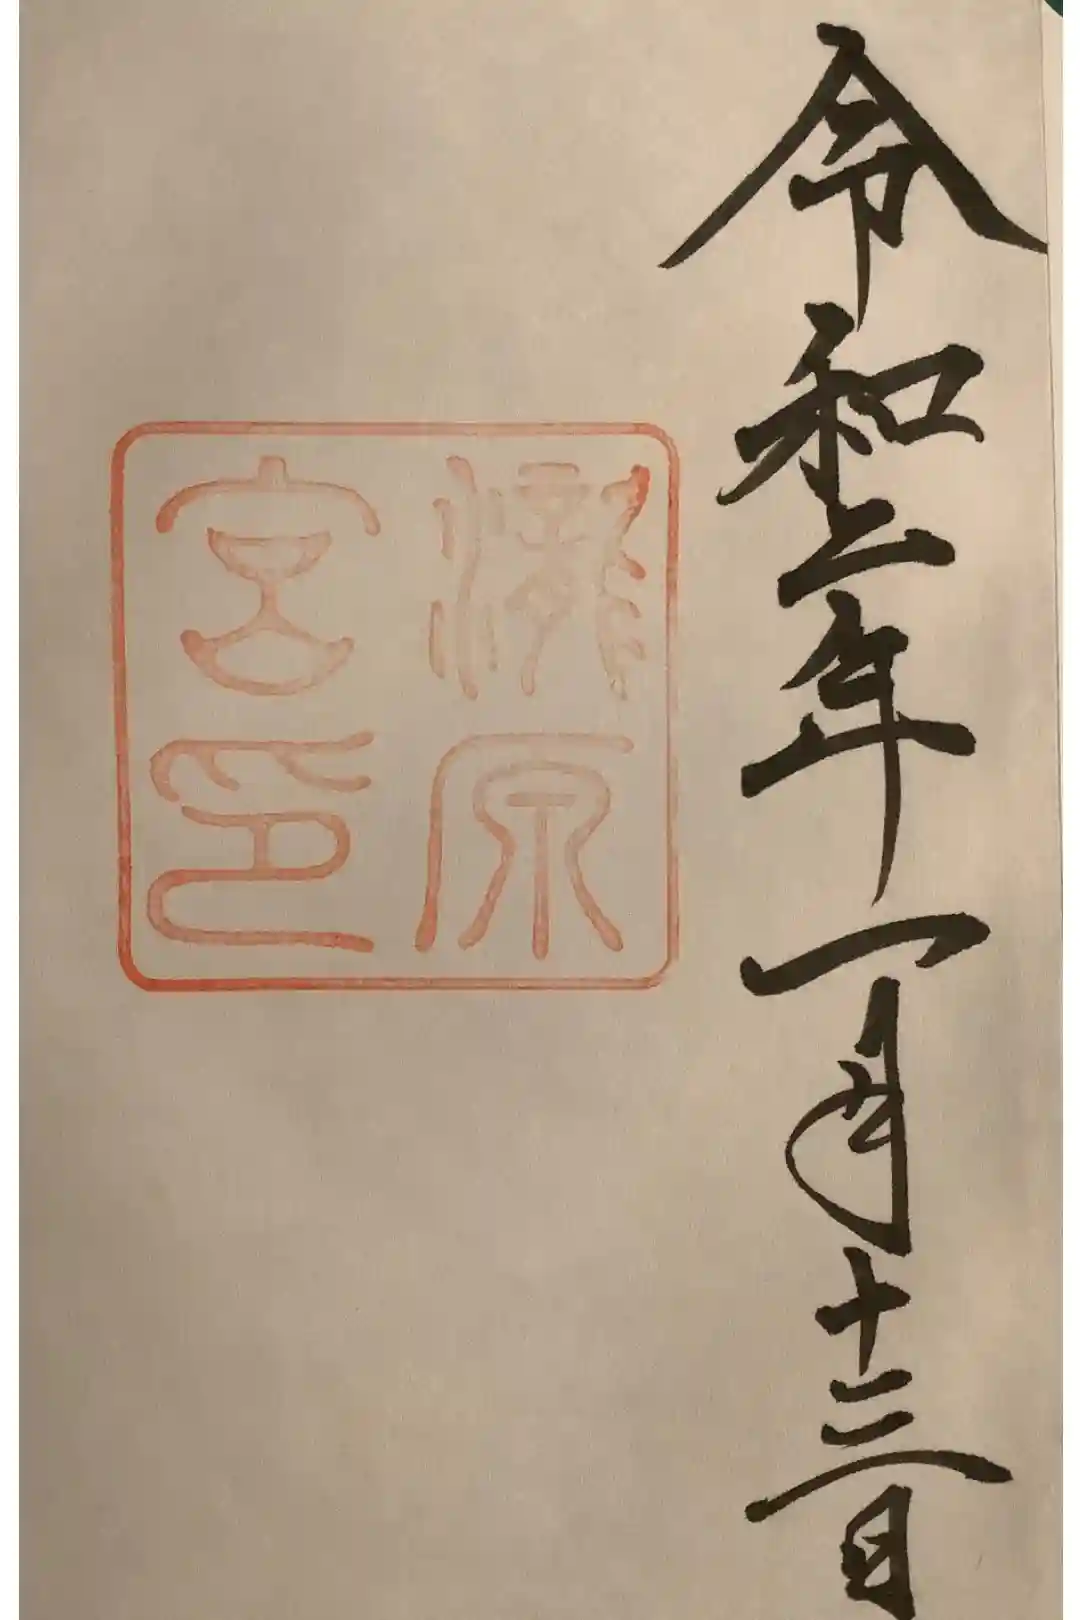 令和二年一月十三日
瀧原
宮印